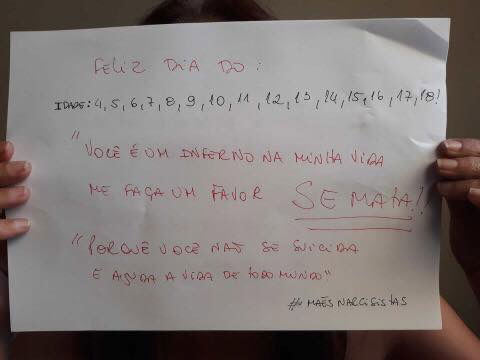 FELIZ DIA DO:
IDADE: 4, 5, 6, 7, 8, 9, 10, 11, 12, 13, 14, 15, 16, 17, 18!
"VOCÊ É UM INFERNO NA MINHA VIDA
ME FAÇA UM FAVOR SE MATA!!
"PORQUÊ VOCÊ NÃO SE SUICIDA
E AJUDA A VIDA DE TODO MUNDO"
#MÃESNARCISISTAS